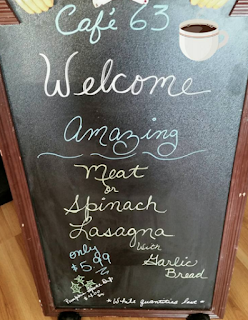 Café 63
Welcome
Amazing
Meat
or
Spinach
Lasagna
With
Garlic
Bread
only
$5.99
* While quantities last *